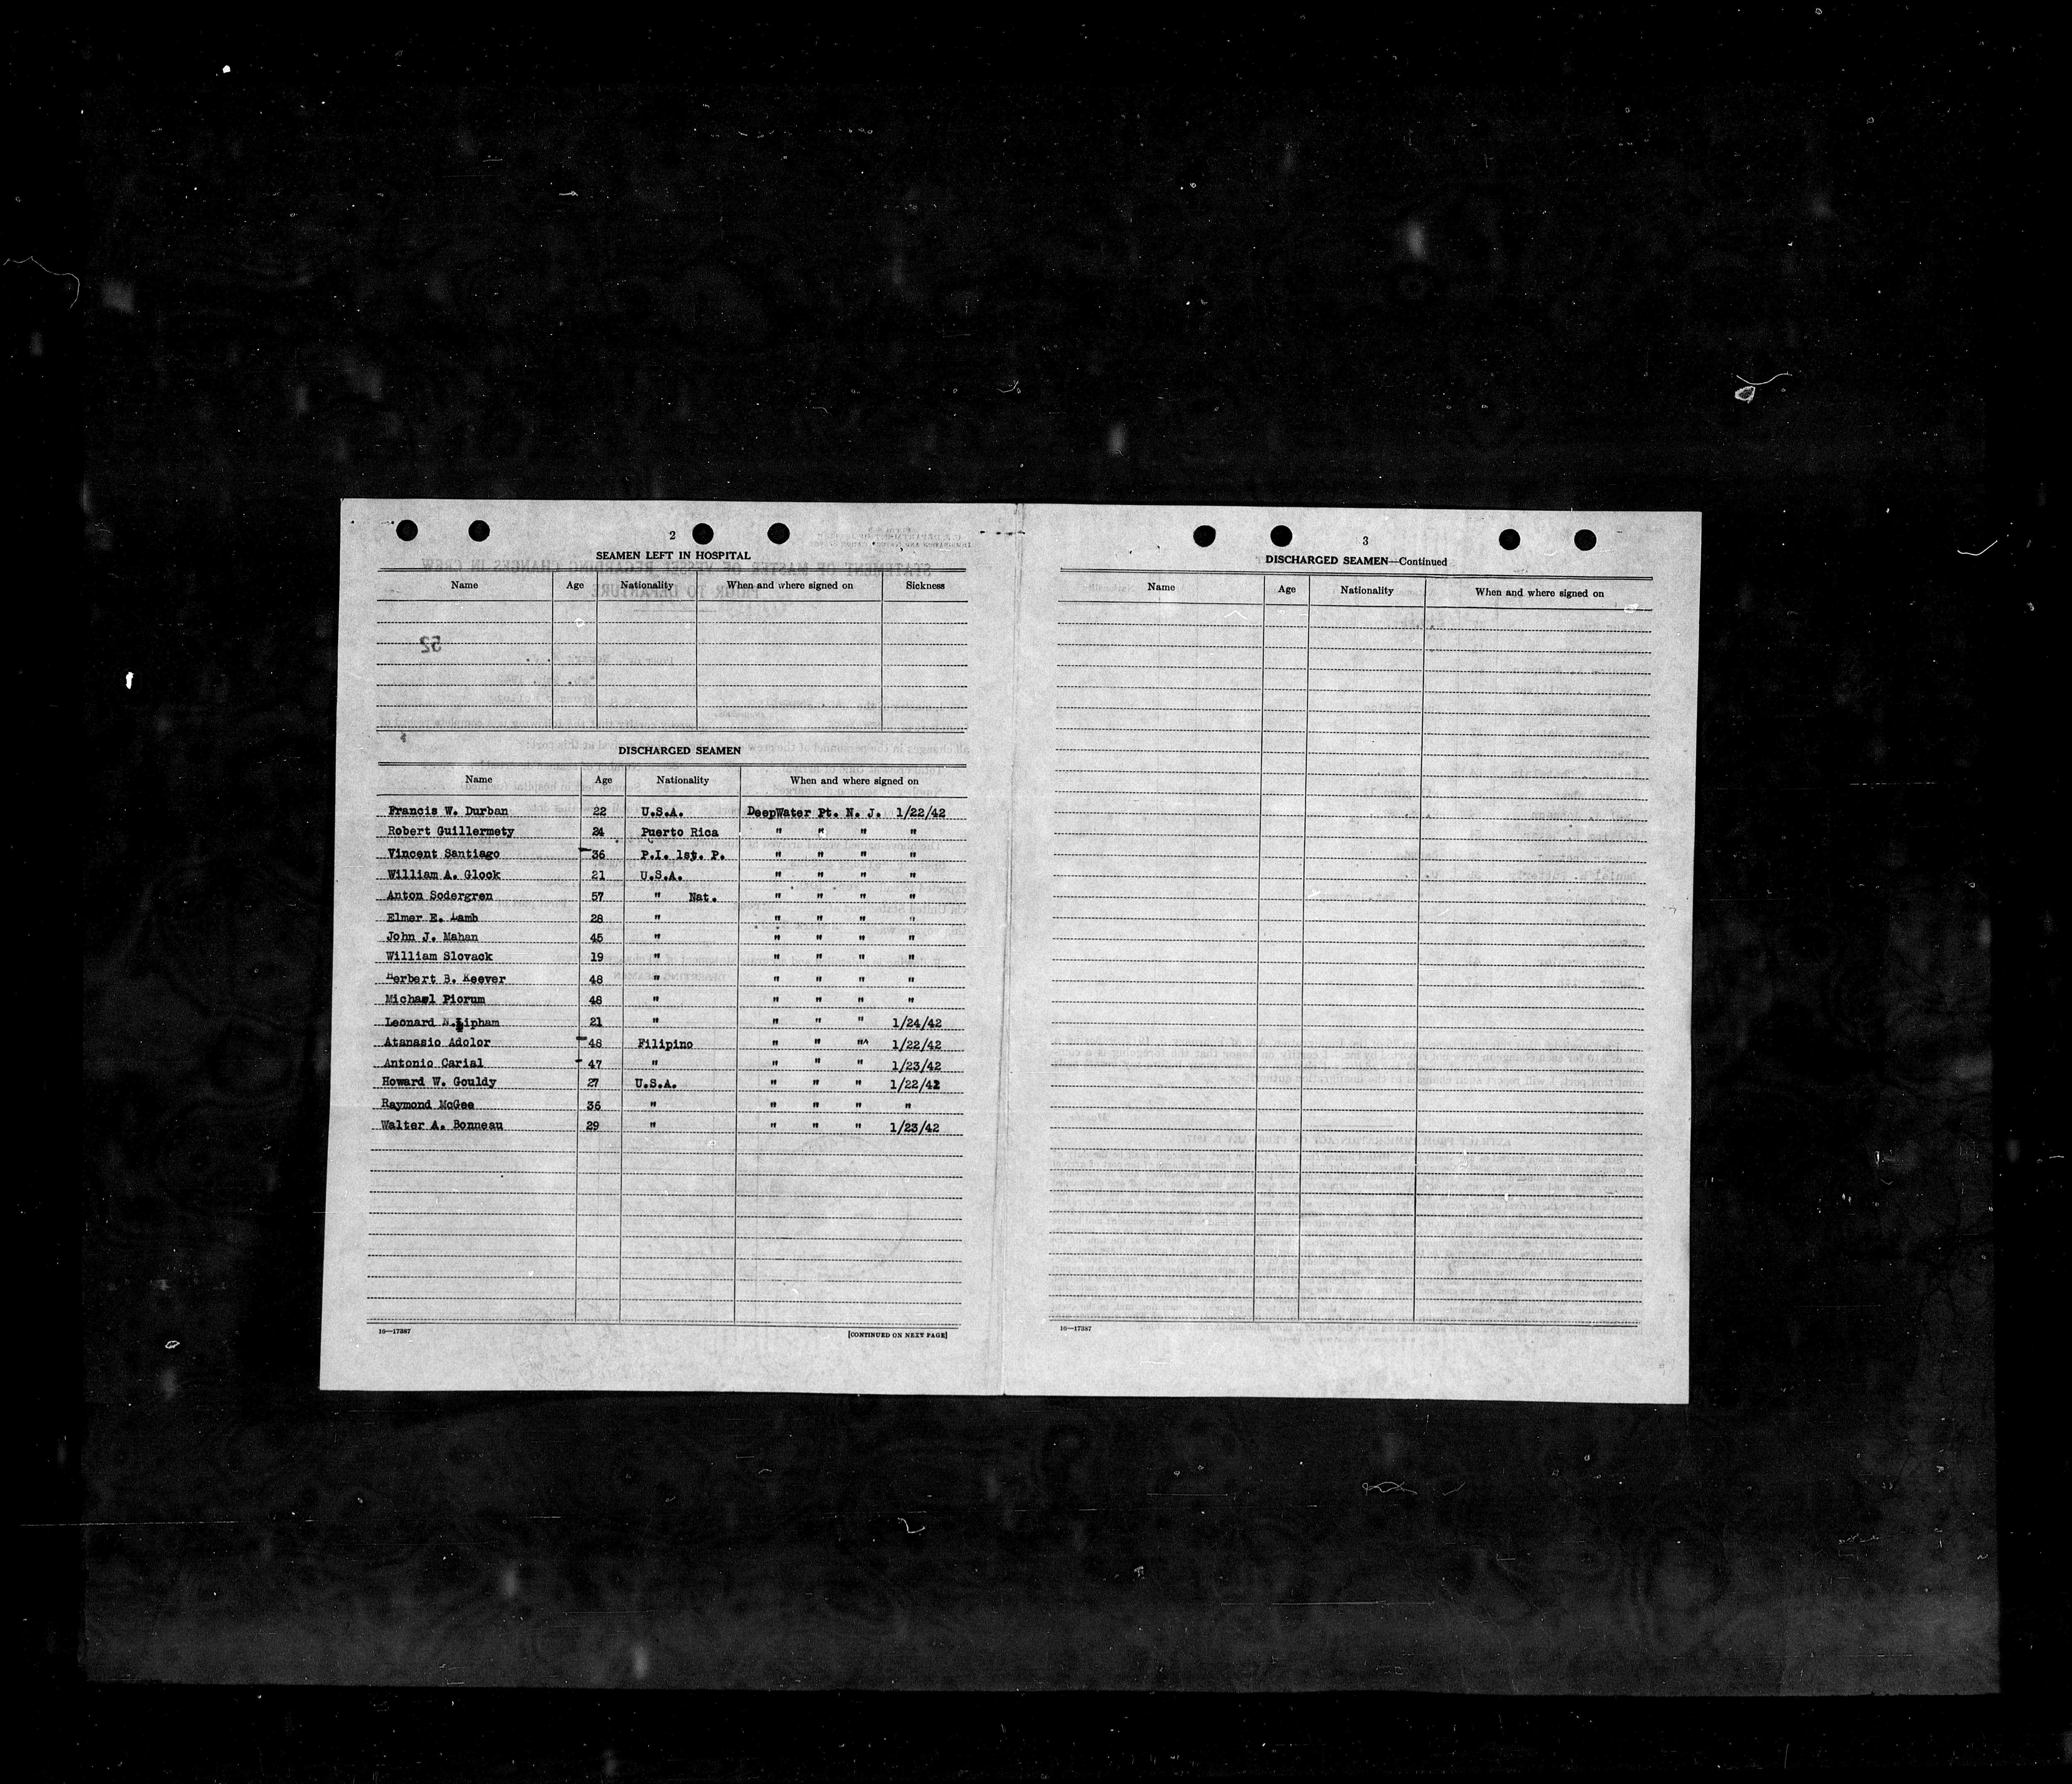 2
SEAMEN LEFT IN HOSPITAL
Name Age Nationality When and where signed on Sickness
52
DISCHARGED SEAMEN
Name Age Nationality When and where signed on
Francis W. Durban 22 U.S.A. DeepWater Pt. N. J. 1/22/42
Robert Guillermety 24 Puerto Rica " " " "
Vincent Santiago 36 P.I. 1st. P. " " " "
William A. Glock 21 U.S.A. " " " "
Anton Sodergren 57 " Nat. " " " "
Elmer E. Lamb 28 " " " " "
John J. Mahan 45 " " " " "
William Slovack 19 " " " " "
Herbert B. Keever 48 " " " " "
Michael Piorum 48 " " " " "
Leonard N. Lipham 21 " " " " 1/24/42
Atanasio Adolor 48 Filipino " " " 1/22/42
Antonio Carial 47 " " " " 1/23/42
Howard W. Gouldy 27 U.S.A. " " " 1/22/42
Raymond McGee 36 " " " " "
Walter A. Bonneau 29 " " " " 1/23/42
16—17387 [CONTINUED ON NEXT PAGE]
3
DISCHARGED SEAMEN—Continued
Name Age Nationality When and where signed on
16—17387